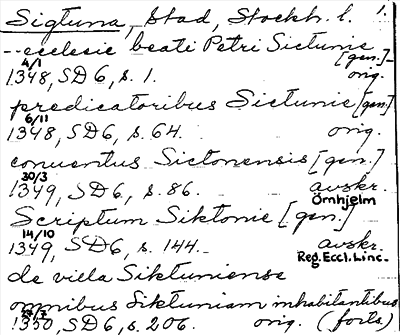 Sigtuna, Stad, Stockh. l. 1.
--ecclesie beati Petri Sictunie [gen.]
4/1 1348, SD6, s. 1. orig.
predicatoribus Sictunie [gen.]
6/11 1348, SD6, s. 64. orig.
conuentus Sictonensis [gen.]
30/3 1349, SD6, s. 86. avskr. Örnhjelm
Scriptum Siktonie [gen.]
14/10 1349, SD6, s. 144. avskr. Reg. Eccl. Linc.
de villa Siktuniense
omnibus Siktuniam inhabitantibus
1350, SD6, s. 206. orig. (forts)